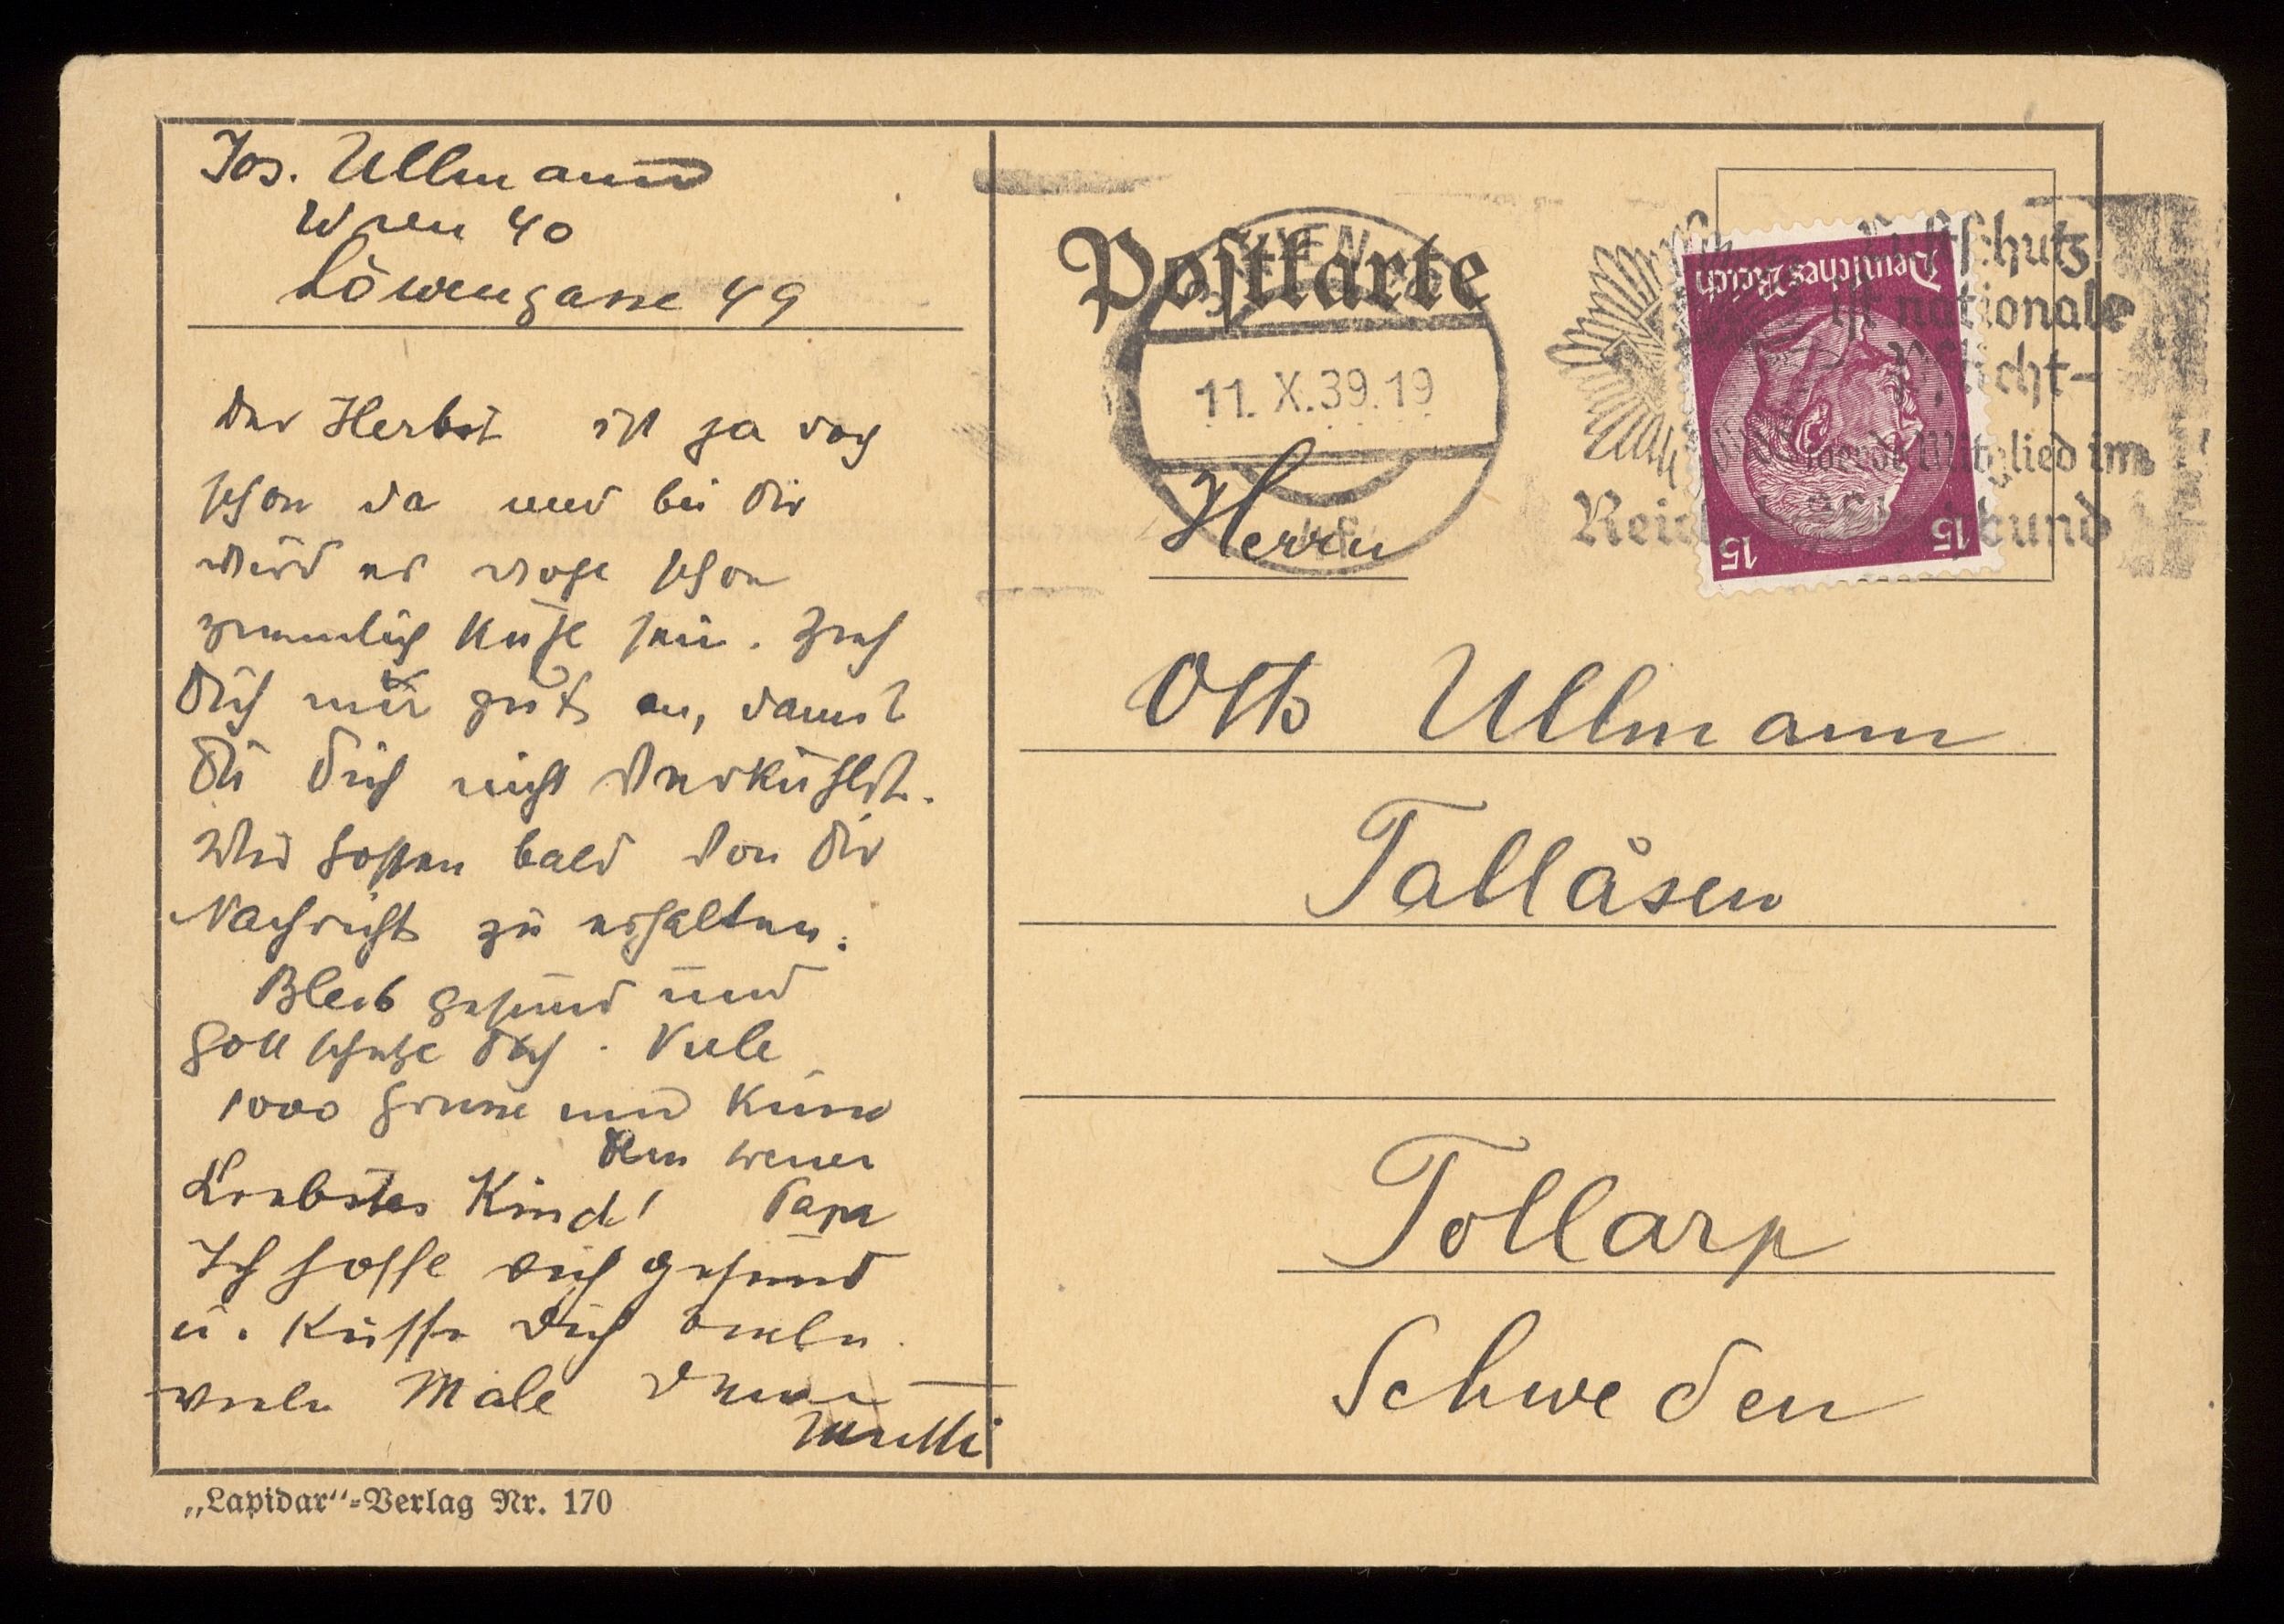 Jos. Ullmann
Wien 40
Löwengasse 49
Der Herbst ist ja doch
schon da und bei Dir
wird es wohl schon
ziemlich kühl sein. Zieh
Dich nur gut an, damit
Du Dich nicht verkühlst.
Wir hoffen bald von Dir
Nachricht zu erhalten.
Bleib gesund und
Gott schütze Dich. Viele
1000 Grüsse und Küsse
Dein treuer
Papa
Liebstes Kind!
Ich hoffe Dich gesund
u. küsse Dich viele
viele Male Deine
Mutti
„Lapidar“-Verlag Nr. 170
Postkarte
WIEN
11.X.39.19
Luftschutz
ist nationale
Pflicht-
werde Mitglied im
Reichsluftschutzbund
Deutsches Reich
15 15
Herrn
Otto Ullmann
Tallåsen
Tollarp
Schweden